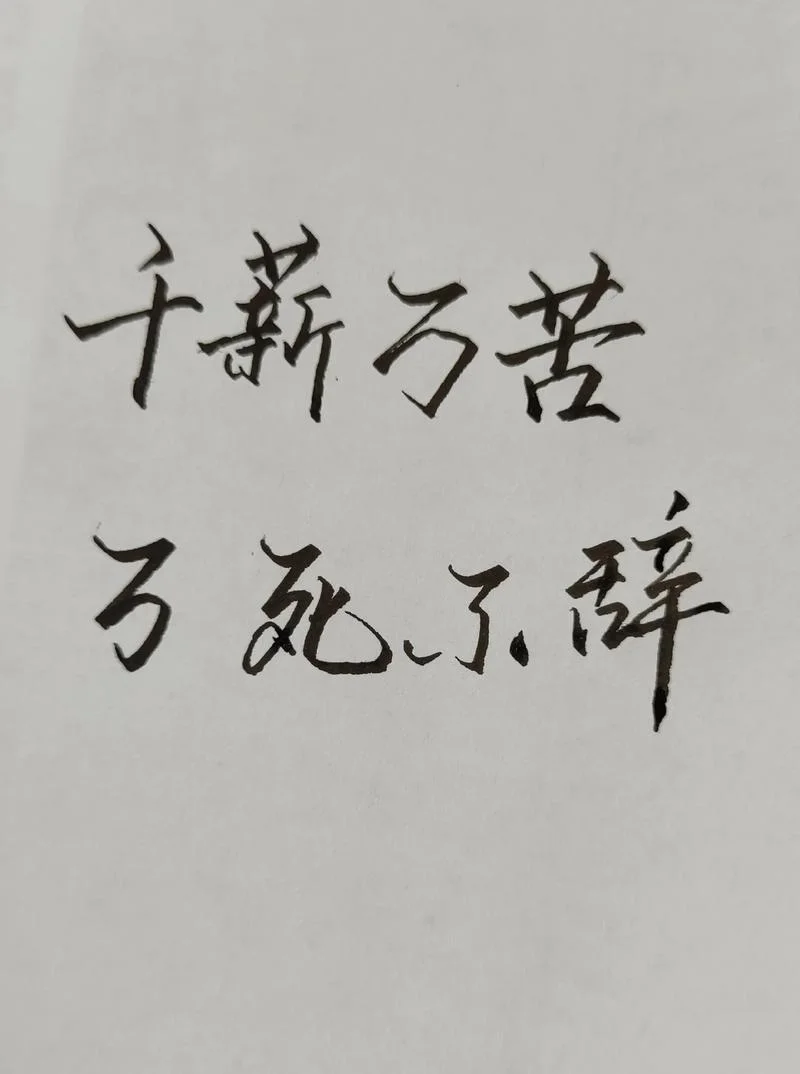 千薪万苦
万死不辞